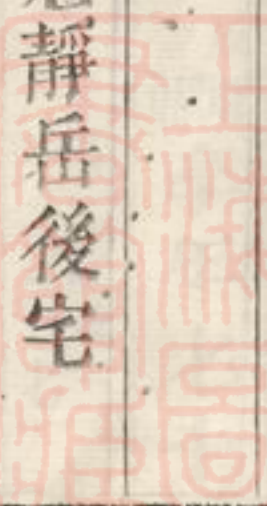 靜岳後宅